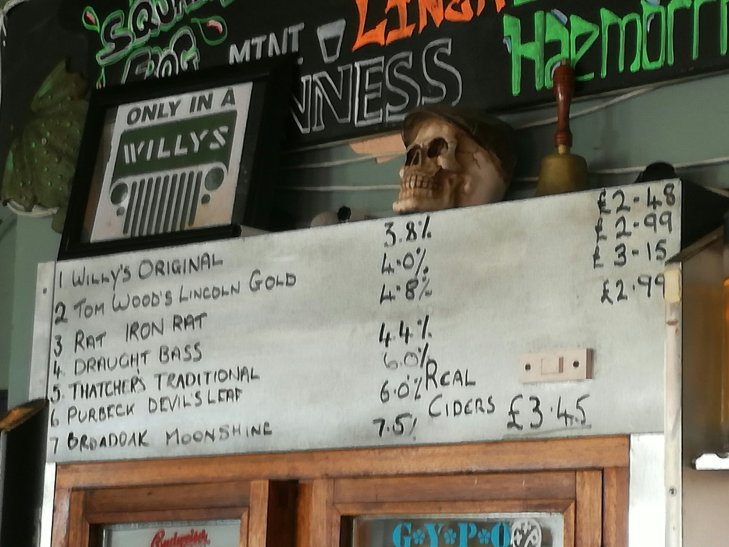 SQUASHED
FROG
MINT
HAEMORR
NNESS
ONLY IN A
WILLYS
1 WILLY'S ORIGINAL 3.8% £2-48
2 TOM WOOD'S LINCOLN GOLD 4.0% £2-99
3 RAT IRON RAT 4.8% £3-15
4. DRAUGHT BASS 4.4% £2.99
5. THATCHER'S TRADITIONAL 6.0%
6 PURBECK DEVIL'S LEAF 6.0% REAL
7 BROADOAK MOONSHINE 7.5% CIDERS £3.45
Budweiser
G*Y*P*O